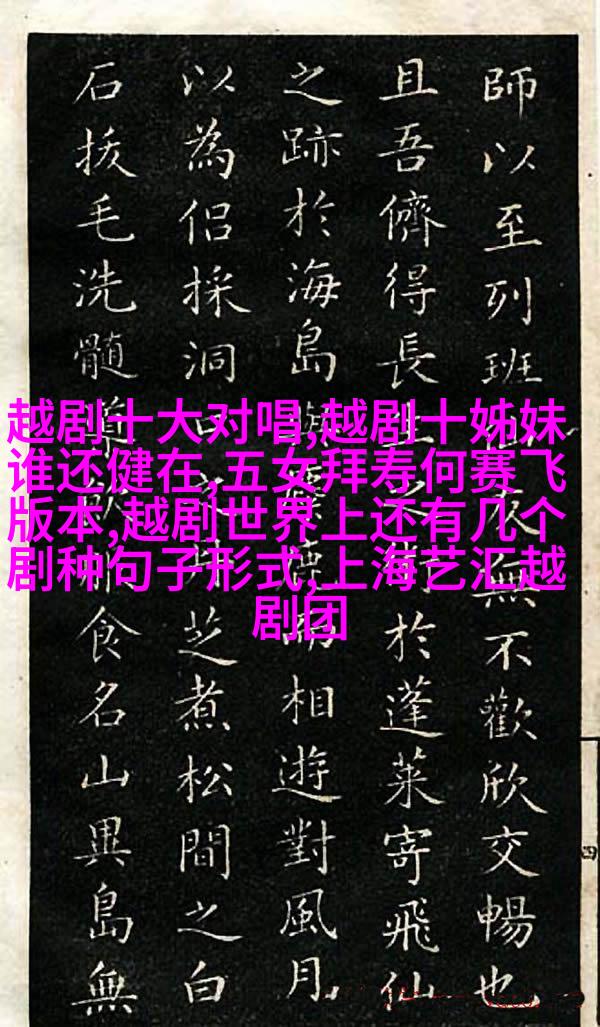 越剧十大对唱,越剧十姊妹
谁还健在,五女拜寿何赛飞
版本,越剧世界上还有几个
剧种句子形式,上海艺汇越
剧团
師以至列班衣無不歡欣交暢也
且吾儕得長於蓬萊寄飛仙
之跡於海島相遊對風月
以為侶採洞芝煮松間之白
石拔毛洗髓食名山異島無